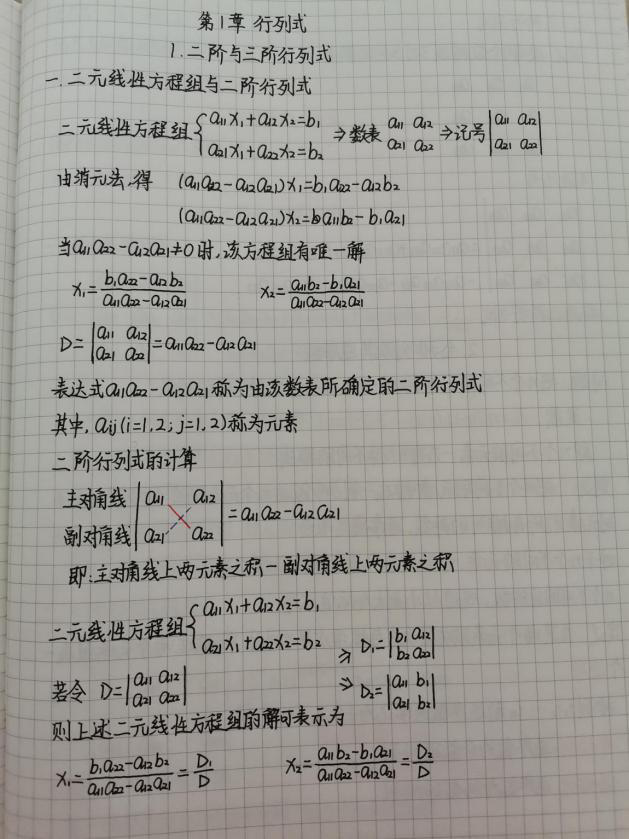 第1章 行列式
1.二阶与三阶行列式
一.二元线性方程组与二阶行列式
二元线性方程组{a₁₁x₁+a₁₂x₂=b₁ ⇒数表 a₁₁ a₁₂ ⇒记号|a₁₁ a₁₂|
a₂₁x₁+a₂₂x₂=b₂ a₂₁ a₂₂ |a₂₁ a₂₂|
由消元法,得 (a₁₁a₂₂-a₁₂a₂₁)x₁=b₁a₂₂-a₁₂b₂
(a₁₁a₂₂-a₁₂a₂₁)x₂=a₁₁b₂-b₁a₂₁
当a₁₁a₂₂-a₁₂a₂₁≠0时,该方程组有唯一解
x₁=(b₁a₂₂-a₁₂b₂)/(a₁₁a₂₂-a₁₂a₂₁) x₂=(a₁₁b₂-b₁a₂₁)/(a₁₁a₂₂-a₁₂a₂₁)
D=|a₁₁ a₁₂|=a₁₁a₂₂-a₁₂a₂₁
|a₂₁ a₂₂|
表达式a₁₁a₂₂-a₁₂a₂₁称为由该数表所确定的二阶行列式
其中,aij(i=1,2;j=1,2)称为元素
二阶行列式的计算
主对角线|a₁₁ a₁₂|=a₁₁a₂₂-a₁₂a₂₁
副对角线|a₂₁ a₂₂|
即:主对角线上两元素之积-副对角线上两元素之积
二元线性方程组{a₁₁x₁+a₁₂x₂=b₁
a₂₁x₁+a₂₂x₂=b₂ ⇒ D₁=|b₁ a₁₂|
|b₂ a₂₂|
若令 D=|a₁₁ a₁₂| ⇒ D₂=|a₁₁ b₁|
|a₂₁ a₂₂| |a₂₁ b₂|
则上述二元线性方程组的解可表示为
x₁=(b₁a₂₂-a₁₂b₂)/(a₁₁a₂₂-a₁₂a₂₁)=D₁/D x₂=(a₁₁b₂-b₁a₂₁)/(a₁₁a₂₂-a₁₂a₂₁)=D₂/D